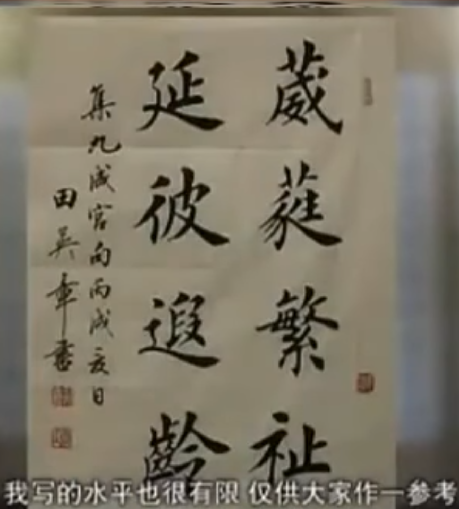 葳蕤繁祉
延彼遐齡
集九成宫句丙戌夏日
田英章書
我写的水平也很有限 仅供大家作一参考